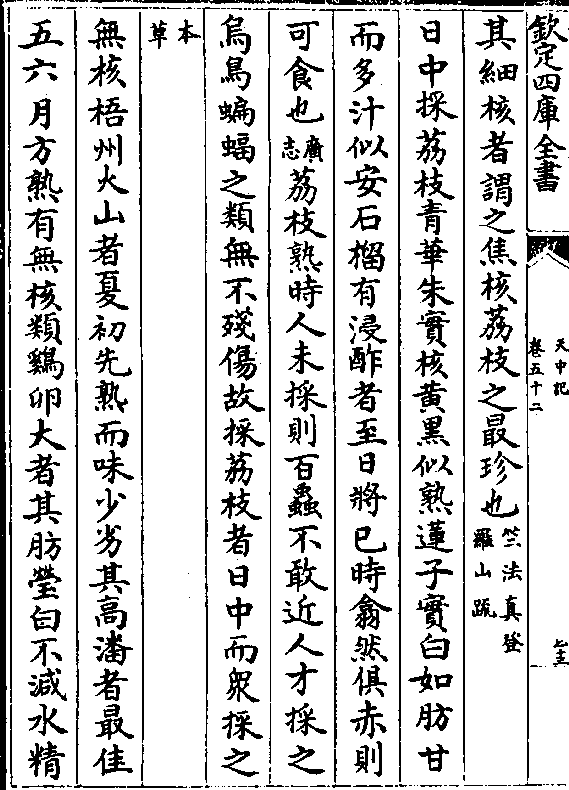 欽定四庫全書
天中記
卷五十二
七十三
其細核者謂之焦核荔枝之最珍也竺法真登羅山疏
日中採荔枝青華朱實核黄黑似熟蓮子實白如肪甘
而多汁似安石榴有浸酢者至日將已時翕然俱赤則
可食也廣志荔枝熟時人未採則百蟲不敢近人才採之
烏鳥蝙蝠之類無不殘傷故採荔枝者日中而衆採之
本草
無核梧州火山者夏初先熟而味少劣其高潘者最佳
五六月方熟有無核類鷄卵大者其肪瑩白不減水精